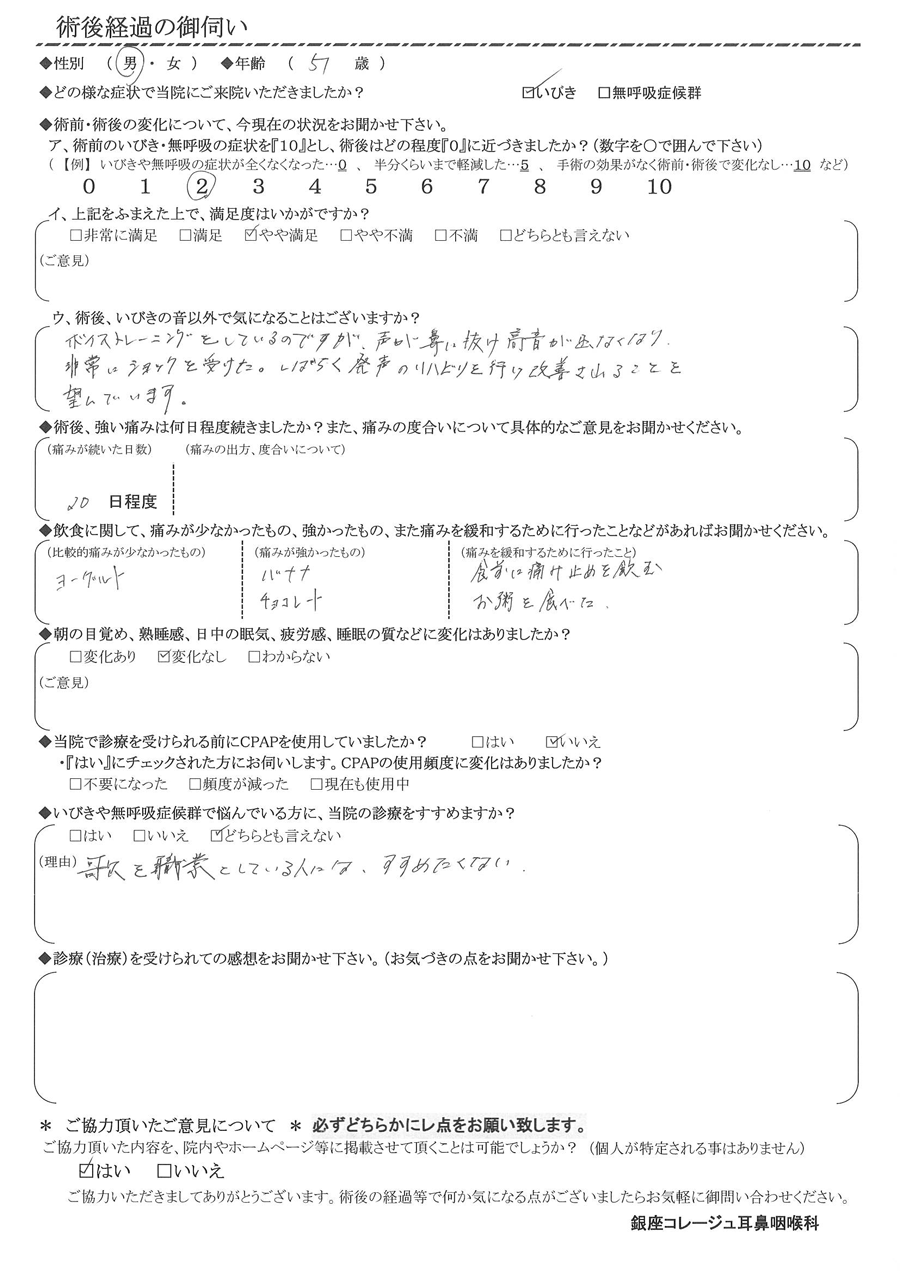 術後経過の御伺い
◆性別 （ 男 ・ 女 ） ◆年齢 （ 57 歳 ）
◆どの様な症状で当院にご来院いただきましたか？ ☑いびき □無呼吸症候群
◆術前・術後の変化について、今現在の状況をお聞かせ下さい。
ア、術前のいびき・無呼吸の症状を『10』とし、術後はどの程度『0』に近づきましたか？（数字を○で囲んで下さい）
（ 【例】 いびきや無呼吸の症状が全くなくなった…0 、 半分くらいまで軽減した…5 、 手術の効果がなく術前・術後で変化なし…10 など）
0 1 2 3 4 5 6 7 8 9 10
イ、上記をふまえた上で、満足度はいかがですか？
□非常に満足 □満足 ☑やや満足 □やや不満 □不満 □どちらとも言えない
（ご意見）
ウ、術後、いびきの音以外で気になることはございますか？
ボイストレーニングをしているのですが、声が鼻に抜け高音が出なくなり、
非常にショックを受けた。しばらく発声のリハビリを行い改善されることを
望んでいます。
◆術後、強い痛みは何日程度続きましたか？また、痛みの度合いについて具体的なご意見をお聞かせください。
（痛みが続いた日数） （痛みの出方、度合いについて）
20 日程度
◆飲食に関して、痛みが少なかったもの、強かったもの、また痛みを緩和するために行ったことなどがあればお聞かせください。
（比較的痛みが少なかったもの） （痛みが強かったもの） （痛みを緩和するために行ったこと）
ヨーグルト バナナ 食前に痛み止めを飲む
チョコレート お粥を食べた.
◆朝の目覚め、熟睡感、日中の眠気、疲労感、睡眠の質などに変化はありましたか？
□変化あり ☑変化なし □わからない
（ご意見）
◆当院で診療を受けられる前にCPAPを使用していましたか？ □はい ☑いいえ
・『はい』にチェックされた方にお伺いします。CPAPの使用頻度に変化はありましたか？
□不要になった □頻度が減った □現在も使用中
◆いびきや無呼吸症候群で悩んでいる方に、当院の診療をすすめますか？
□はい □いいえ ☑どちらとも言えない
（理由） 歌を職業としている人には、すすめたくない.
◆診療（治療）を受けられての感想をお聞かせ下さい。（お気づきの点をお聞かせ下さい。）
＊ ご協力頂いたご意見について ＊ 必ずどちらかにレ点をお願い致します。
ご協力頂いた内容を、院内やホームページ等に掲載させて頂くことは可能でしょうか？ （個人が特定される事はありません）
☑はい □いいえ
ご協力いただきましてありがとうございます。術後の経過等で何か気になる点がございましたらお気軽に御問い合わせください。
銀座コレージュ耳鼻咽喉科